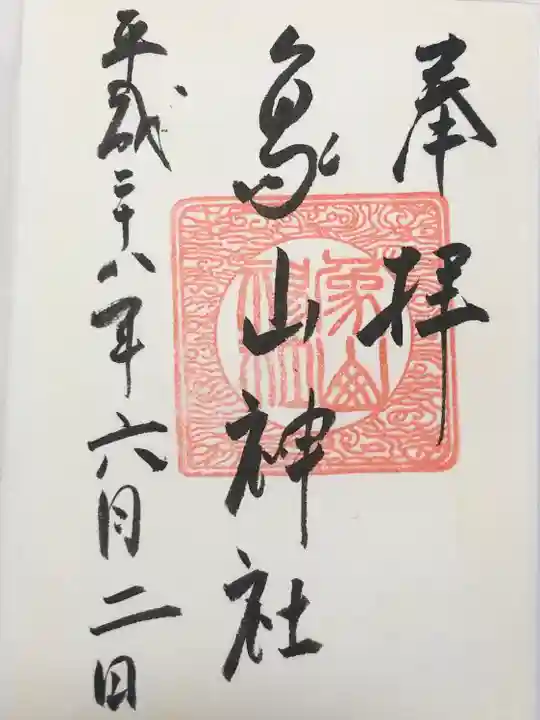 奉拝
象山神社
平成二十八年六月二日
象山
神社